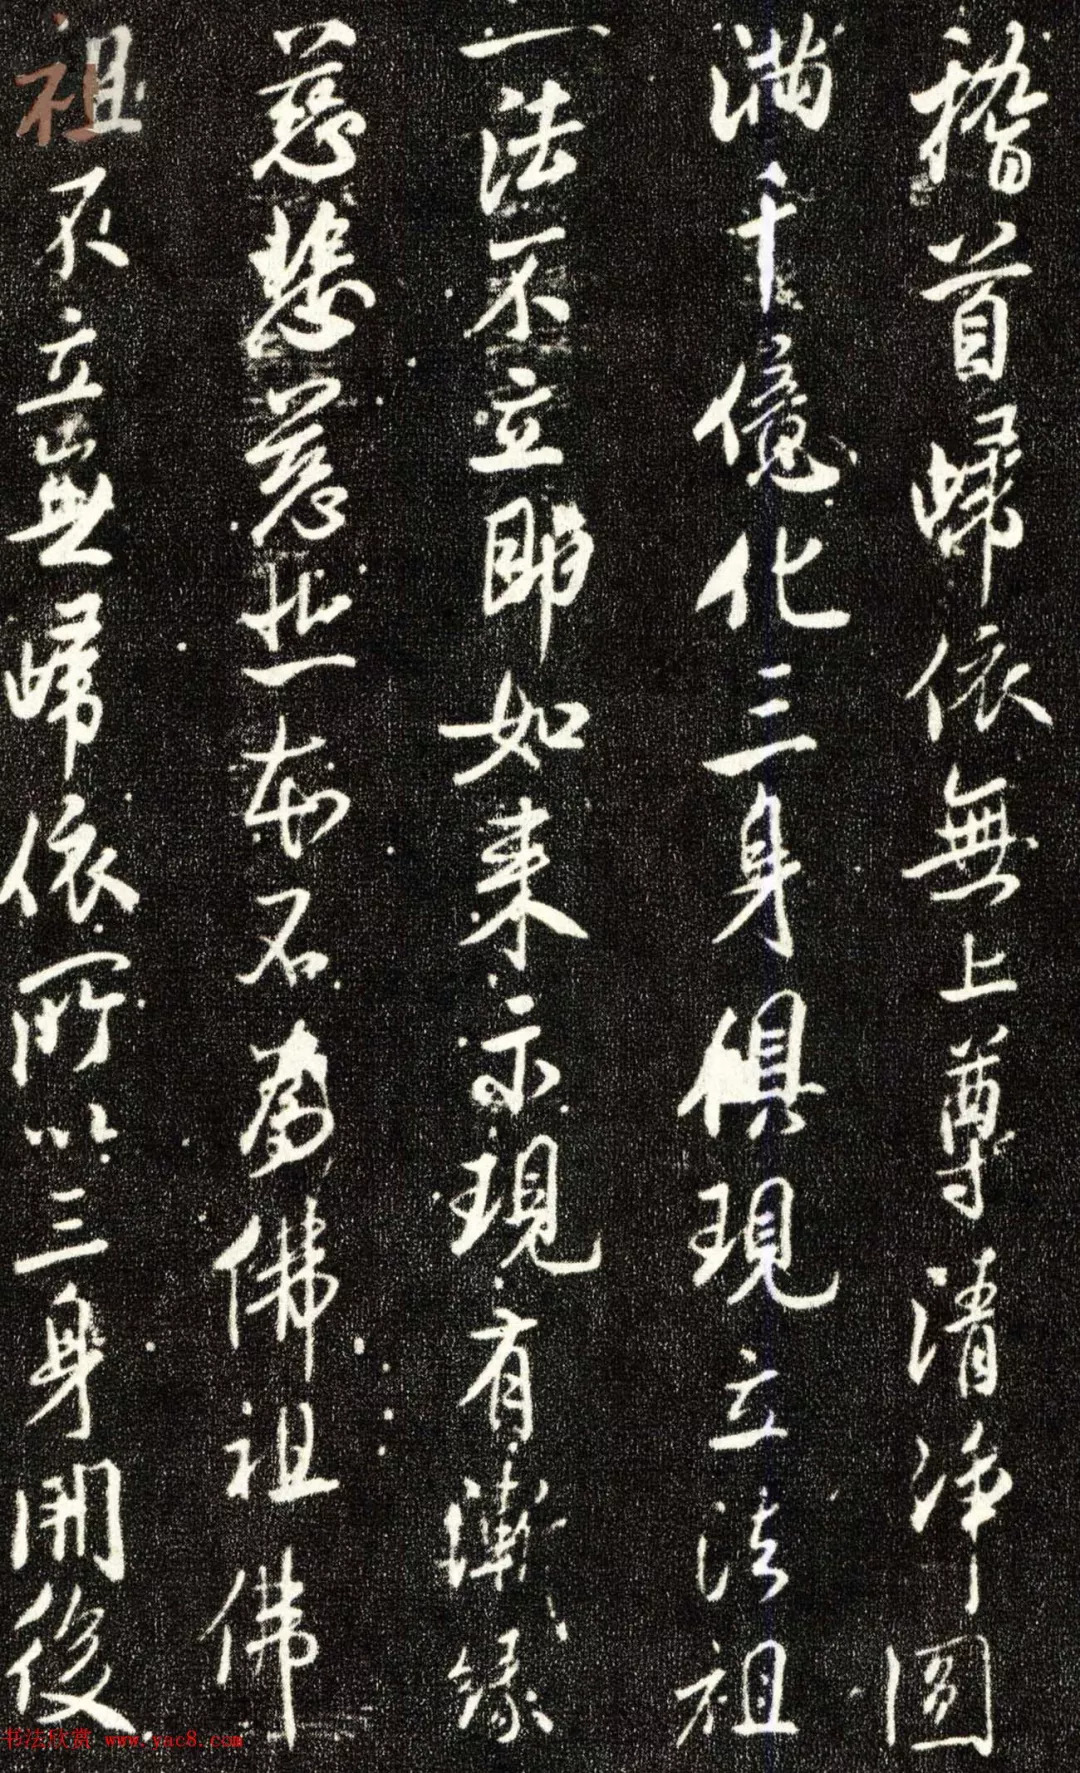 稽首歸依無上尊清淨圓
滿千億化三身俱現立法祖
一法不立即如來示現有漸緣
慈愍慈此一本石為佛祖佛
祖不立無歸依所以三身開後
书法欣赏 www.yac8.com